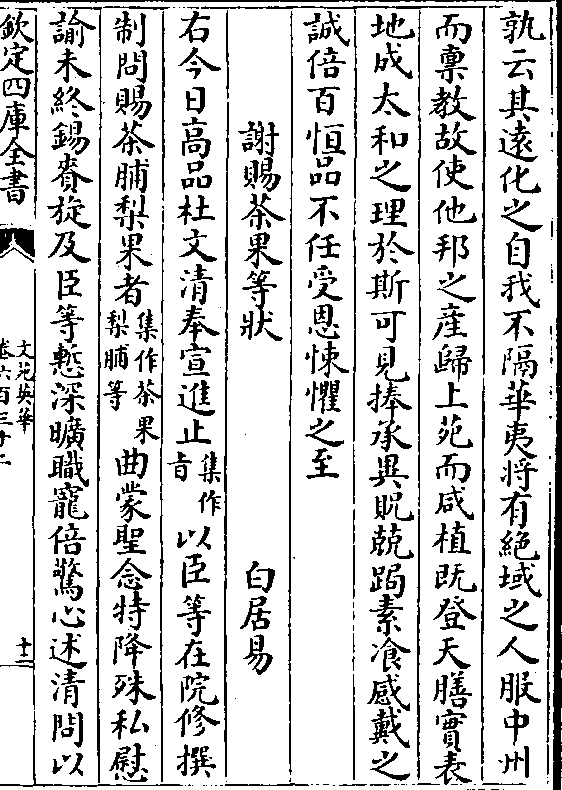 孰云其遠化之自我不隔華夷将有絶域之人服中州
而禀教故使他邦之産歸上苑而咸植既登天膳實表
地成太和之理於斯可見捧承異貺兢跼素飡感戴之
誠倍百恒品不任受恩悚懼之至
謝賜茶果等狀 白居易
右今日高品杜文清奉宣進止集作旨以臣等在院修撰
制問賜茶脯梨果者集作茶果梨脯等曲蒙聖念特降殊私慰
諭未終錫賚旋及臣等慙深曠職寵倍驚心述清問以
欽定四庫全書 文苑英華 卷六百三十二 十二